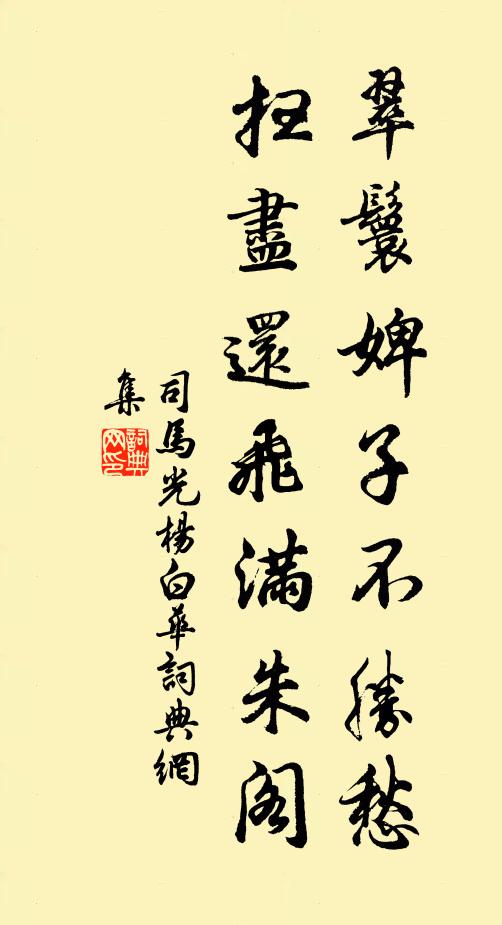 翠鬟婢子不勝愁
扫盡還飛滿朱阁
司馬光楊白華詞典網
集
詞典网印